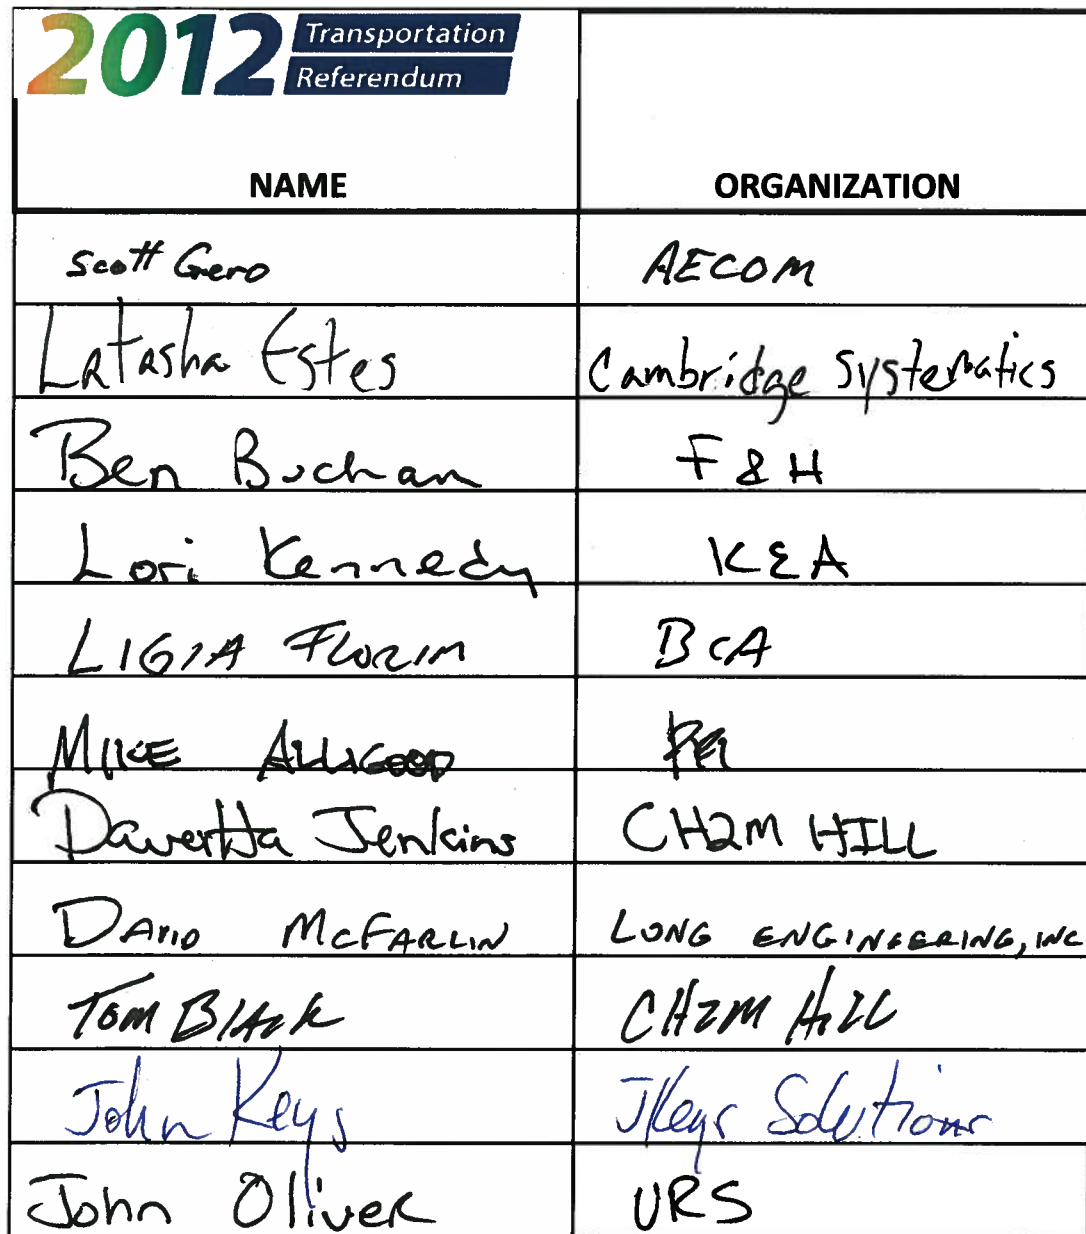 2012 Transportation
Referendum
NAME ORGANIZATION
Scott Gero AECOM
Latasha Estes Cambridge Systematics
Ben Buchan F & H
Lori Kennedy K & A
LIGIA FLORIM BCA
MIKE ALLIGOOD
Davertta Jenkins CH2M HILL
DAVID MCFARLIN LONG ENGINEERING, INC
TOM BLACK CH2M HILL
John Keys JKeys Solutions
John Oliver URS